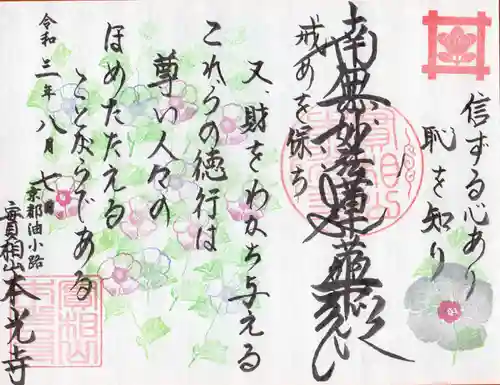 信ずる心あり
恥を知り
南無妙法蓮華経
戒めを保ち
又、財をわかち与える
これらの徳行は
尊い人々の
ほめたたえる
ことがらである
令和三年八月七日
京都油小路
實相山本光寺